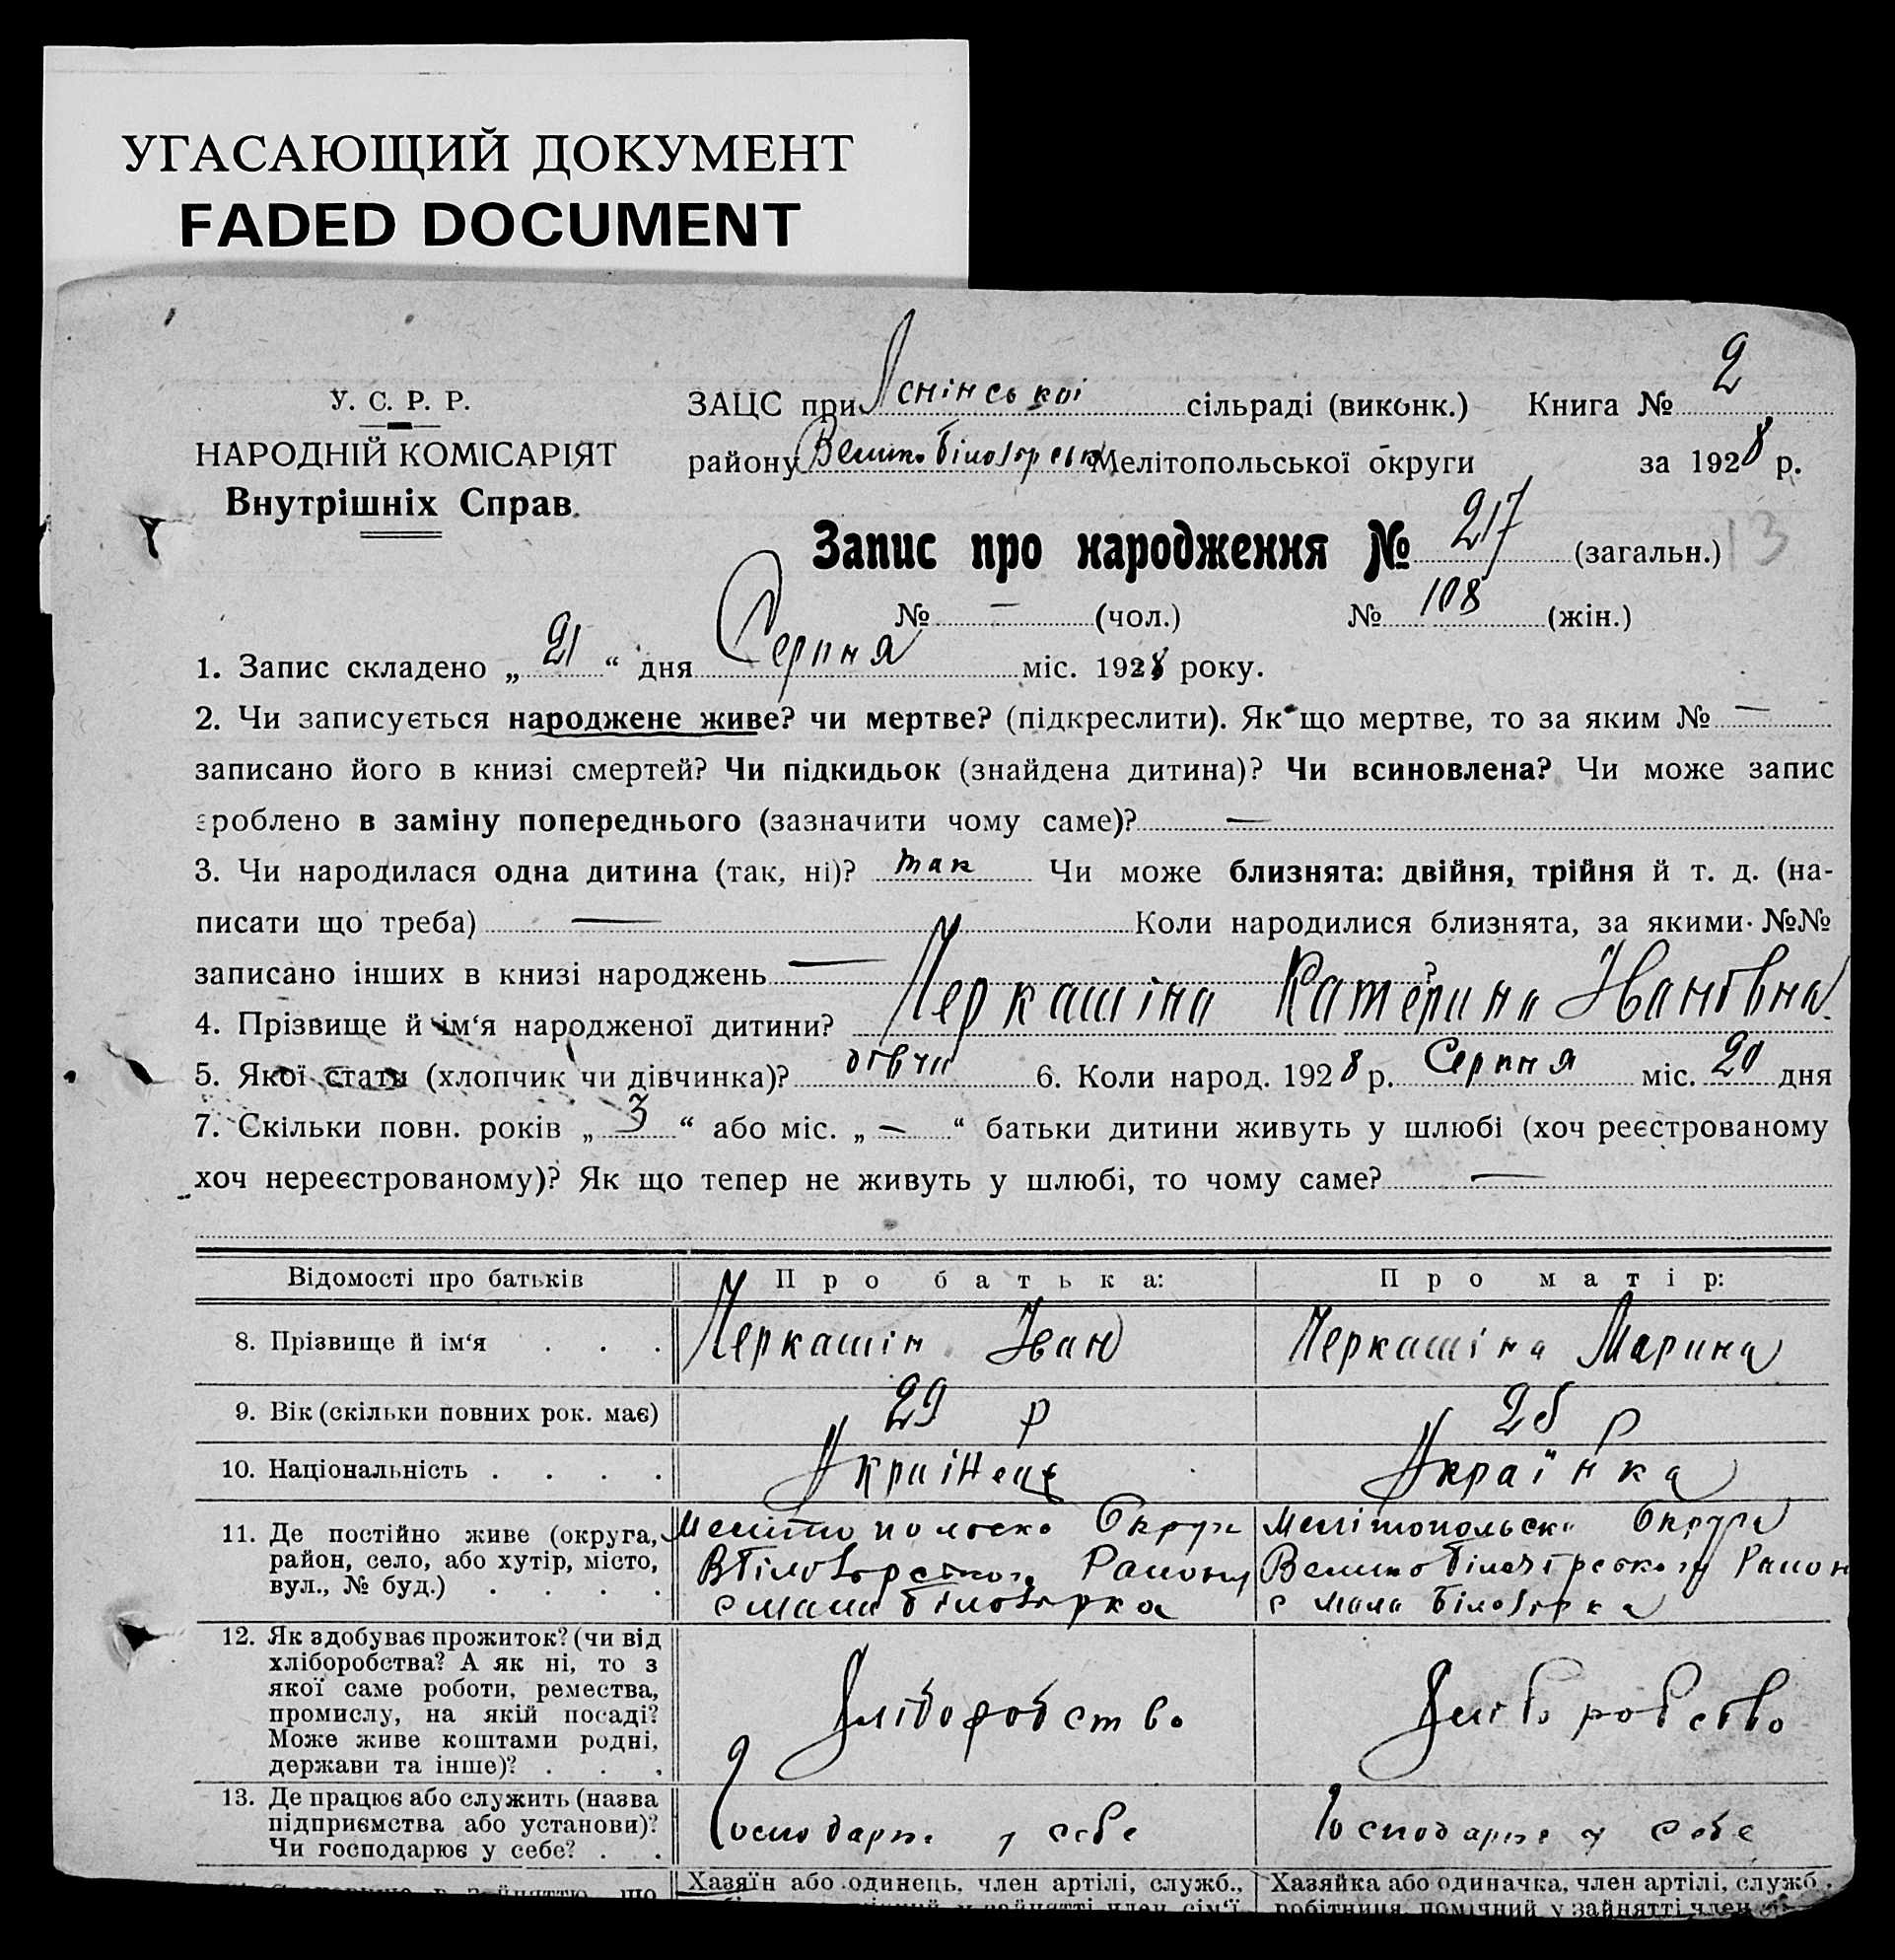 УГАСАЮЩИЙ ДОКУМЕНТ
FADED DOCUMENT
У. С. Р. Р.
НАРОДНІЙ КОМІСАРІЯТ
Внутрішніх Справ.
ЗАЦС при Яснінської сільраді (виконк.) Книга № 2
району Мелітопольської округи за 1928 р.
Запис про народження № 217 (загальн.) 13
№ — (чол.) № 108 (жін.)
1. Запис складено „ 21 “ дня Серпня міс. 1928 року.
2. Чи записується народжене живе? чи мертве? (підкреслити). Як що мертве, то за яким № —
записано його в книзі смертей? Чи підкидьок (знайдена дитина)? Чи всиновлена? Чи може запис
зроблено в заміну попереднього (зазначити чому саме)? —
3. Чи народилася одна дитина (так, ні)? так Чи може близнята: двійня, трійня й т. д. (на-
писати що треба) — Коли народилися близнята, за якими №№
записано інших в книзі народжень — ?
4. Прізвище й ім‘я народженої дитини? Черкашіна Катерина Іванівна
5. Якої стати (хлопчик чи дівчинка)? дівчи 6. Коли народ. 1928 р. Серпня міс. 20 дня
7. Скільки повн. років „ 3 “ або міс. „ — “ батьки дитини живуть у шлюбі (хоч реєстрованому
хоч нереєстрованому)? Як що тепер не живуть у шлюбі, то чому саме? —
Відомості про батьків
Про батька:
Про матір:
8. Прізвище й ім‘я . . .
Черкашін Іван
Черкашіна Марина
9. Вік (скільки повних рок. має)
29 р
25 р
10. Національність . . . .
Українець
Українка
11. Де постійно живе (округа,
район, село, або хутір, місто,
вул., № буд.) . . . .
Округи
Району
с мала білозірка
Округи
Район
с мала білозірка
12. Як здобуває прожиток? (чи від
хліборобства? А як ні, то з
якої саме роботи, ремества,
промислу, на якій посаді?
Може живе коштами родні,
держави та інше)? . . .
Хліборобство
Хліборобство
13. Де працює або служить (назва
підприємства або установи)?
Чи господарює у себе? . .
Господарює у себе
Господарює у себе
Хазяїн або одинець, член артілі, служб.,
Хазяйка або одиначка, член артілі, служб.,
робітниця, помічний у зайнятті член